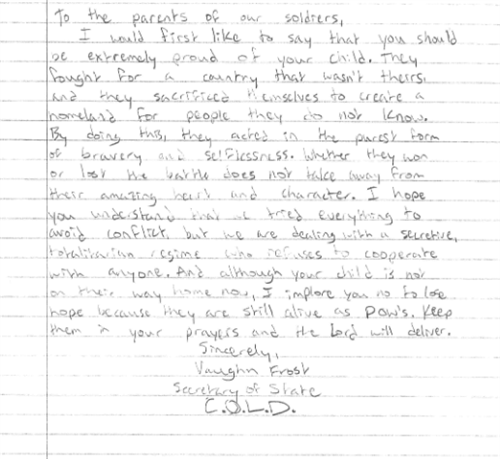 To the parents of our soldiers,
I would first like to say that you should
be extremely proud of your child. They
fought for a country that wasn't theirs,
and they sacrificed themselves to create a
homeland for people they do not know.
By doing this, they acted in the purest form
of bravery and selflessness. Whether they won
or lost the battle does not take away from
their amazing heart and character. I hope
you understand that we tried everything to
avoid conflict, but we are dealing with a secretive,
totalitarian regime who refuses to cooperate
with anyone. And although your child is not
on their way home now, I implore you no to lose
hope because they are still alive as POW's. Keep
them in your prayers and the Lord will deliver.
Sincerely,
Vaughn Frost
Secretary of State
C.O.L.D.